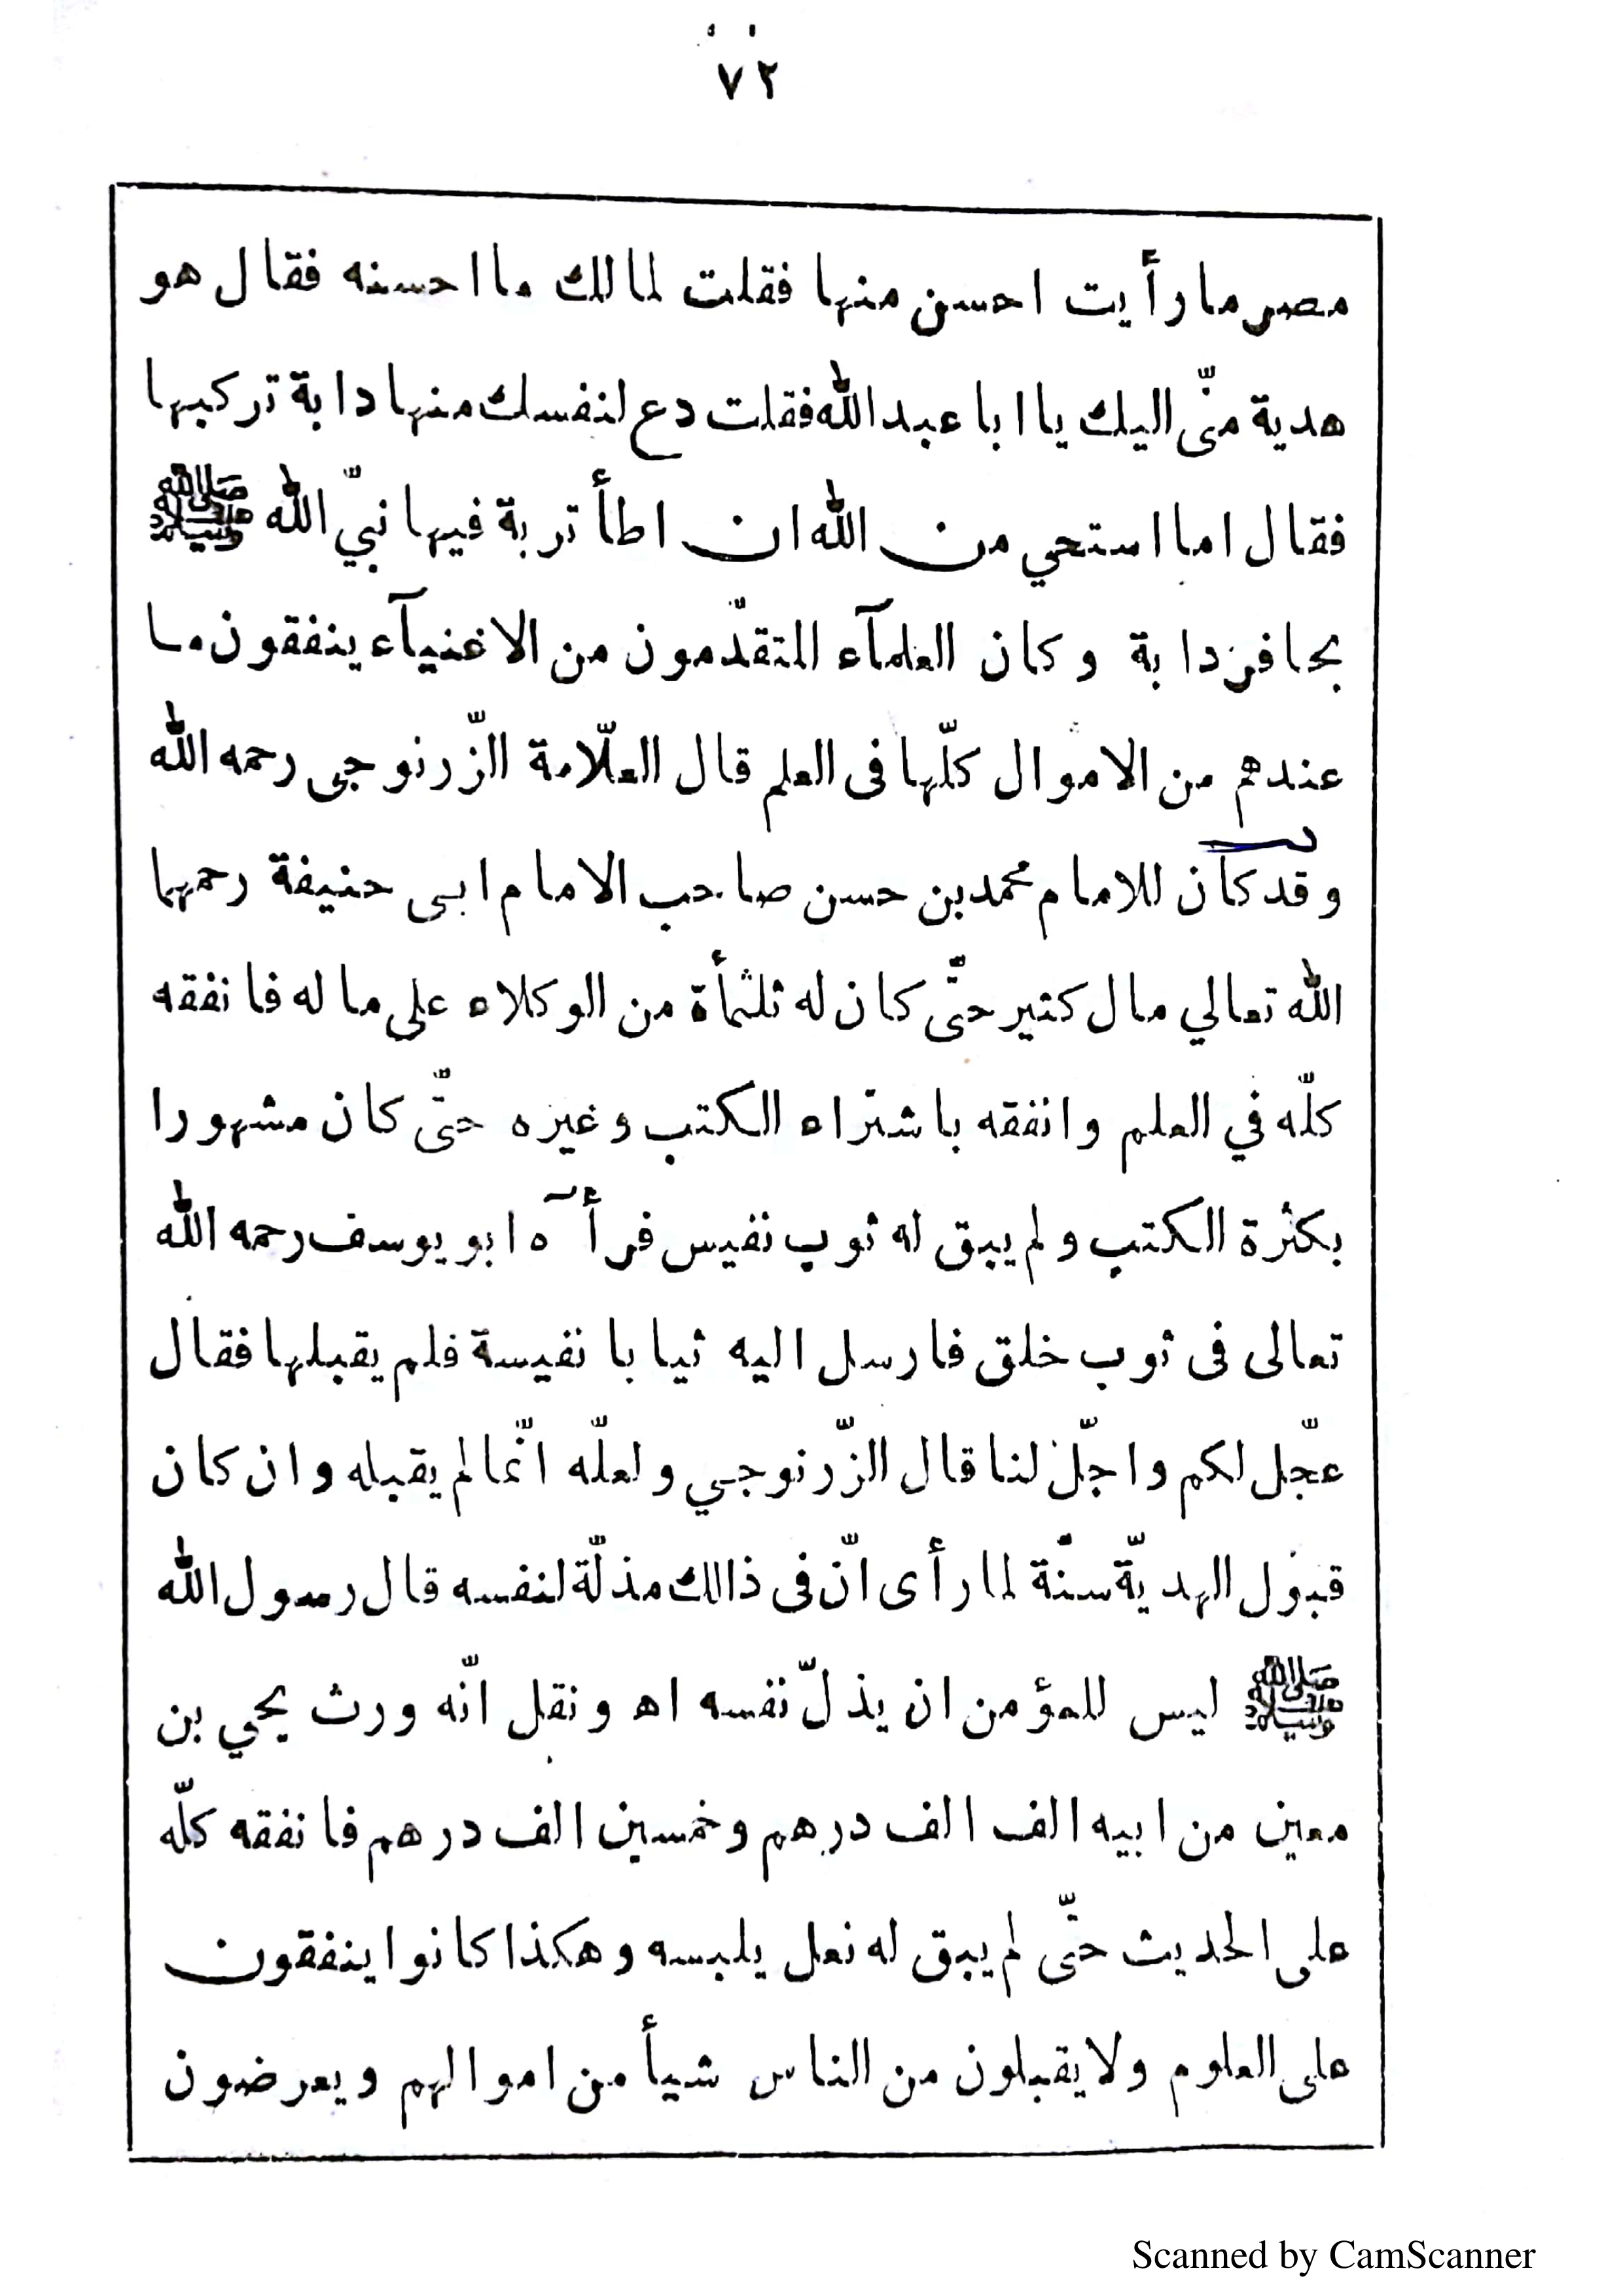 ٧٢
مصر ما رأيت احسن منها فقلت لمالك ما احسنه فقال هو
هدية منّى اليك يا ابا عبد الله فقلت دع لنفسك منها دابة تركبها
فقال اما استحي من الله ان اطأ تربة فيها نبيّ الله ﷺ
بحافر دابة وكان العلمآء المتقدّمون من الاغنيآء ينفقون ما
عندهم من الاموال كلّها فى العلم قال العلّامة الزّرنوجى رحمه الله
وقد كان للامام محمد بن حسن صاحب الامام ابى حنيفة رحمهما
الله تعالي مال كثير حتّى كان له ثلثمأة من الوكلاء على ماله فانفقه
كلّه في العلم وانفقه باشتراء الكتب وغيره حتّى كان مشهورا
بكثرة الكتب ولم يبق له ثوب نفيس فرأۤه ابو يوسف رحمه الله
تعالى فى ثوب خلق فارسل اليه ثيابا نفيسة فلم يقبلها فقال
عجّل لكم واجّل لنا قال الزّرنوجي ولعلّه انّما لم يقبله وان كان
قبول الهديّة سنّة لما رأى انّ فى ذالك مذلّة لنفسه قال رسول الله
ﷺ ليس للمؤمن ان يذلّ نفسه اه ونقل انّه ورث يحي بن
معين من ابيه الف الف درهم وخمسين الف درهم فانفقه كلّه
على الحديث حتّى لم يبق له نعل يلبسه وهكذا كانوا ينفقون
على العلوم ولا يقبلون من الناس شيأ من اموالهم ويعرضون
Scanned by CamScanner